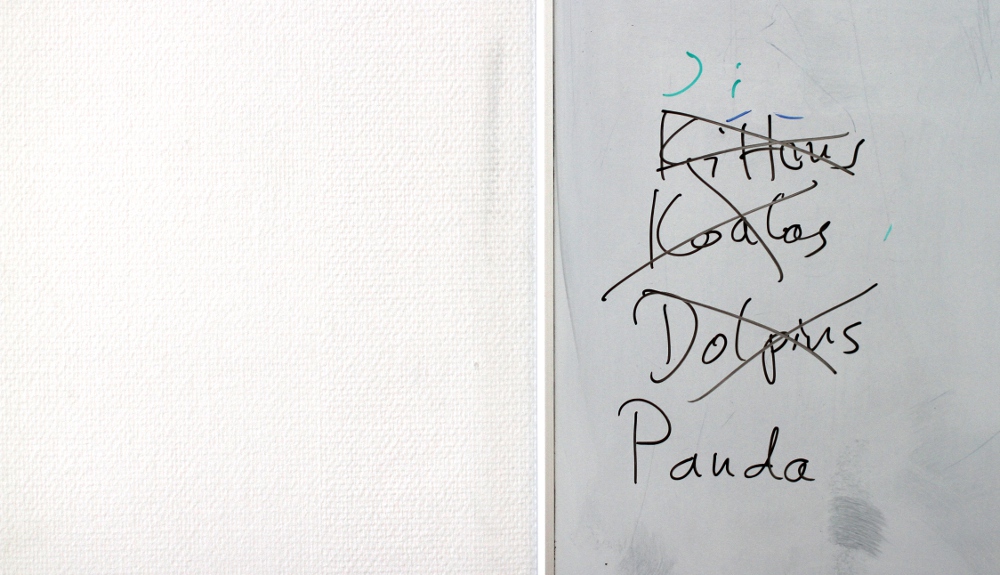 Kittens
Koalas
Dolpins
Panda